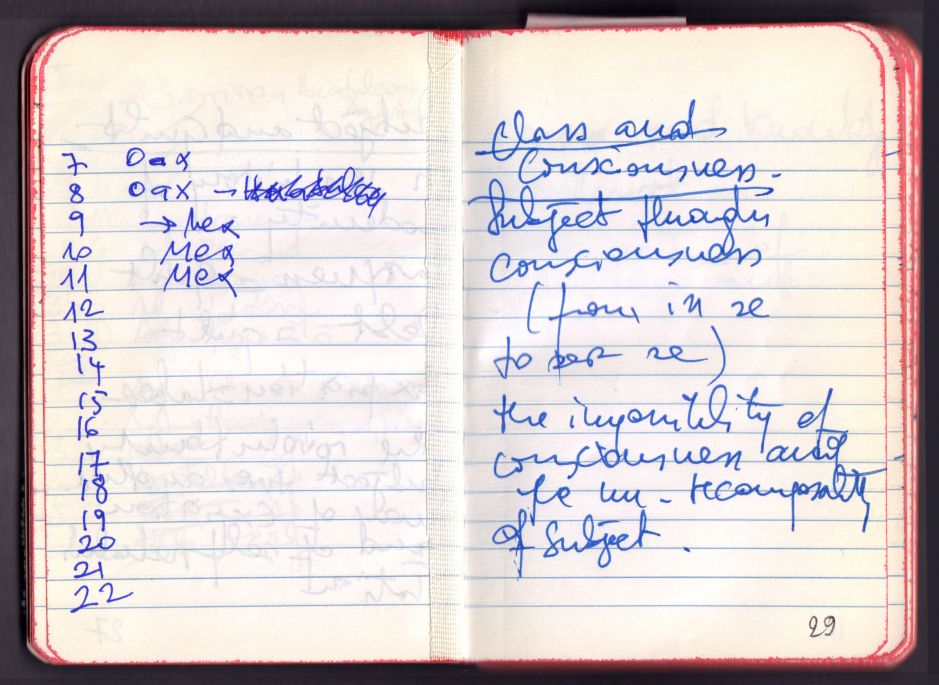 7 Oax
8 Oax →
9 → Mex
10 Mex
11 Mex
12
13
14
15
16
17
18
19
20
21
22
Class and
Consciousness.
Subject through
consciousness
(from in se
to per se)
the impossibility of
consciousness and
un-recomposability
of Subject.
29